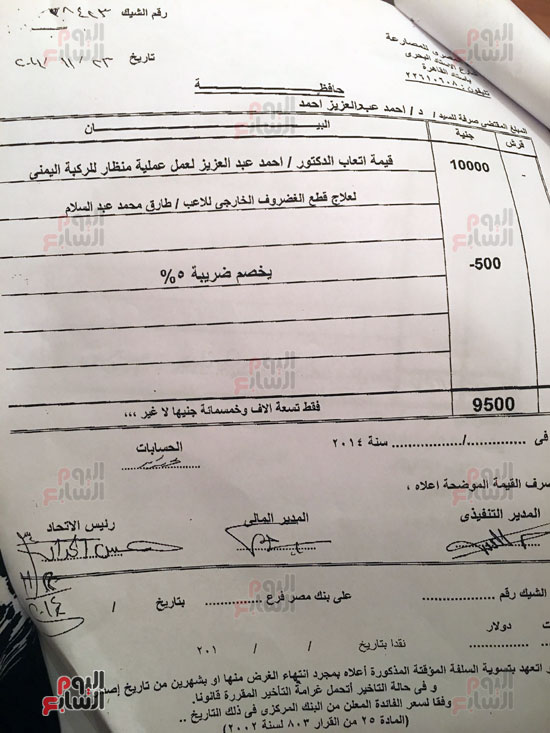 رقم الشيك
المصرى للمصارعة
تاريخ ٢٣ / ١١ /
شارع الاستاد البحرى
باستاد القاهرة
تليفون : ٢٢٦١٠٦٠٨
حافظـــــــــة
المبلغ المقتضى صرفة للسيد / د / احمد عبدالعزيز احمد
قرش جنية البيـــــــــان
10000 قيمة اتعاب الدكتور / احمد عبد العزيز لعمل عملية منظار للركبة اليمنى
لعلاج قطع الغضروف الخارجى للاعب / طارق محمد عبد السلام
-500 يخصم ضريبة ٥%
9500 فقط تسعة الاف وخمسمائة جنيها لا غير ,,,
فى ............../.............. سنة ٢٠١٤
الحسابات
صرف القيمة الموضحة اعلاه ،
المدير التنفيذى المدير المالى رئيس الاتحاد
الشيك رقم .................. على بنك مصر فرع .............. بتاريخ / /
دولار نقدا بتاريخ / / ٢٠١
اتعهد بتسوية السلفة المؤقتة المذكورة أعلاه بمجرد انتهاء الغرض منها او بشهرين من تاريخ
و فى حالة التاخير أتحمل غرامة التأخير المقررة قانونا.
وفقا لسعر الفائدة المعلن من البنك المركزى فى ذلك التاريخ ..
(المادة ٢٥ من القرار ٨٠٣ لسنة ٢٠٠٢)
اليوم السابع